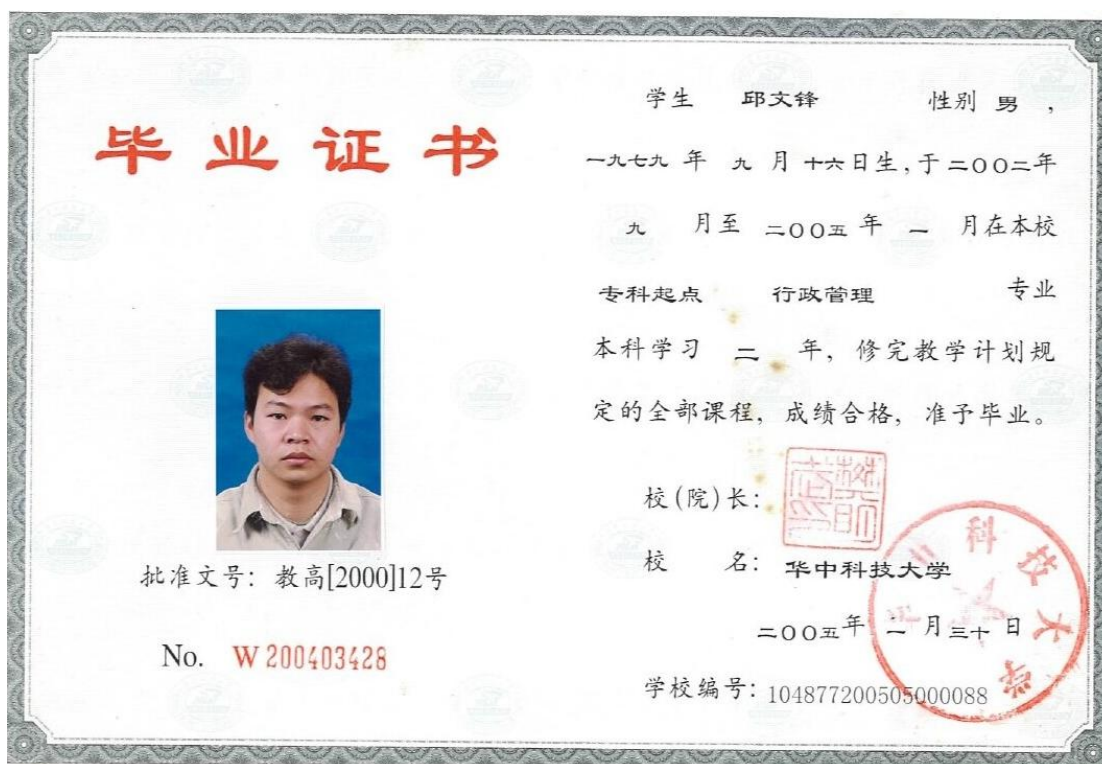 毕业证书
批准文号：教高[2000]12号
No. W 200403428
学生 邱文锋 性别 男，
一九七九 年 九 月 十六日生，于二〇〇二年
九 月至 二〇〇五 年 一 月在本校
专科起点 行政管理 专业
本科学习 二 年，修完教学计划规
定的全部课程，成绩合格，准予毕业。
校(院)长：
校 名：华中科技大学
二〇〇五年 一 月三十 日
学校编号：104877200505000088
华中科技大学